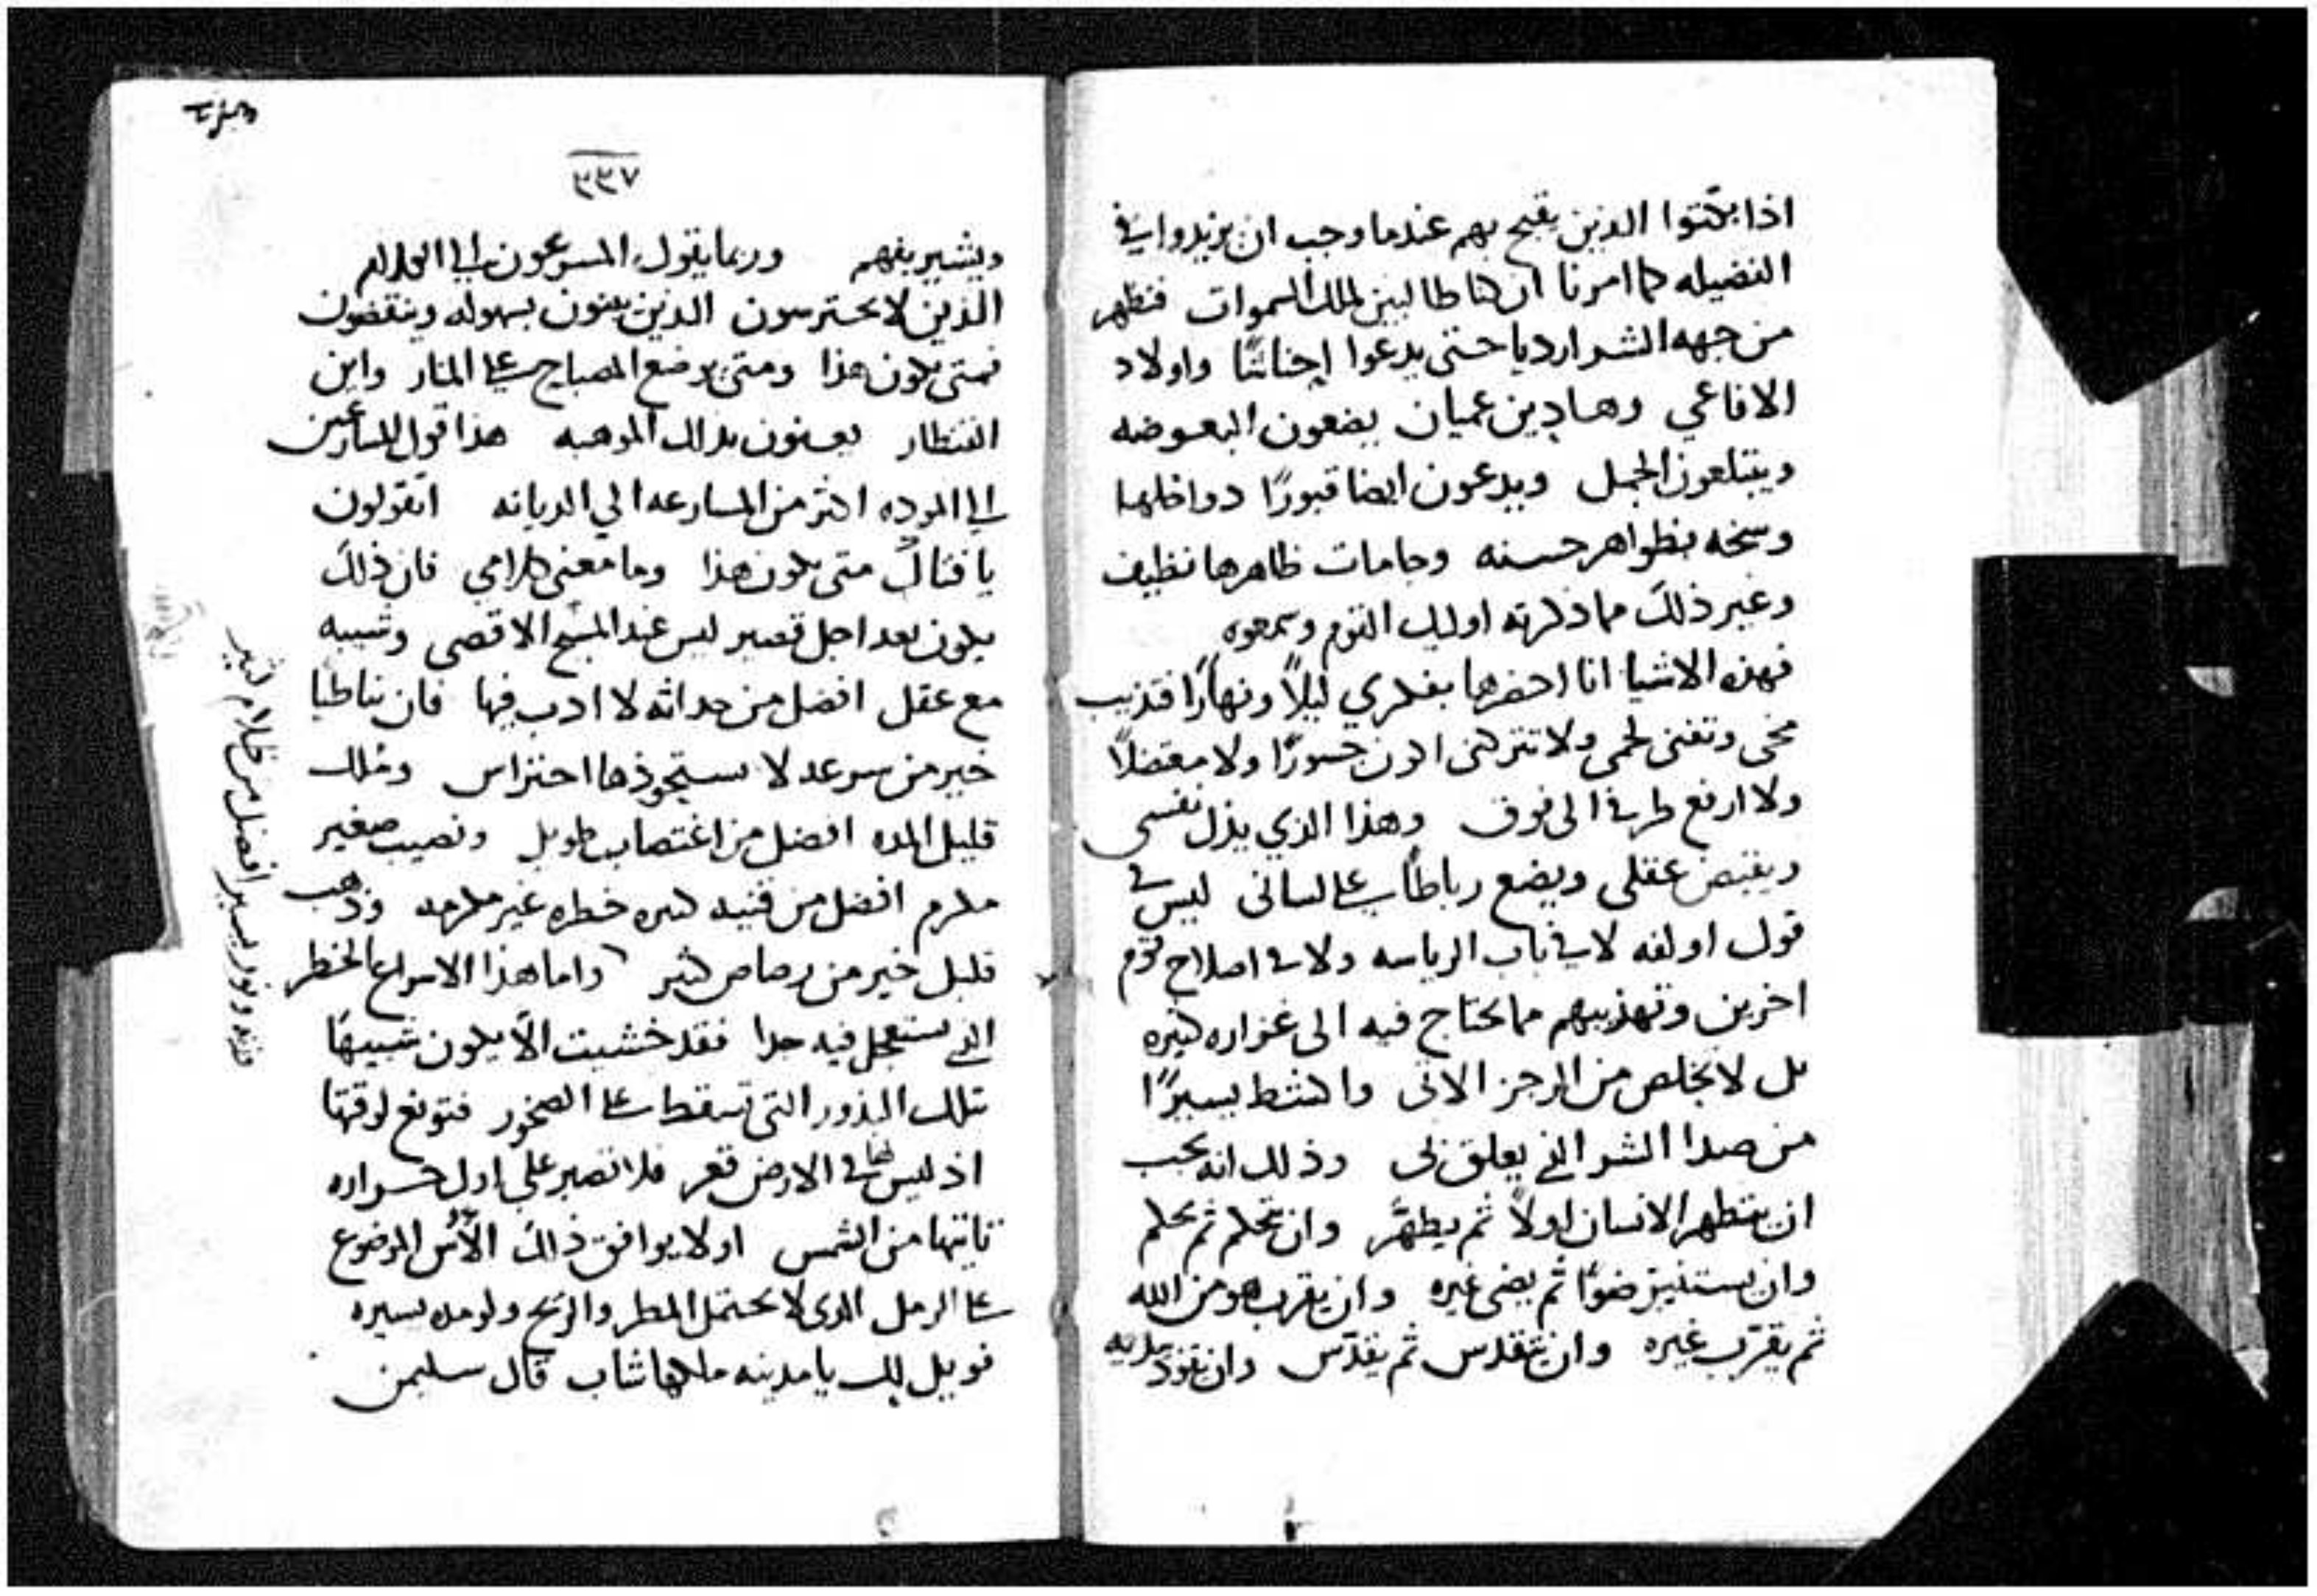 اذا بكتوا الذين يقبح بهم عندما وجب ان يزيدوا في
الفضيله كما امرنا ان كنا طالبين لملك السموات فنظهر
من جهه الشر اردياء حتى يدعوا اجناسًا واولاد
الافاعي وهادين عميان يضعون البعوضه
ويبتلعون الجمل ويدعون ايضا قبورًا دواخلها
وسخه بظواهر حسنه وجامات ظاهرها نظيف
وغير ذلك مما ذكرته اوليك القوم وسمعوه
فهذه الاشيا انا احضرها بفكري ليلاً ونهارًا فتذيب
مخي وتفني لحمي ولا تتركني اكون جسورًا ولا مفضلاً
ولا ارفع طرفي الى فوق وهذا الذي يذل نفسي
ويقبض عقلي ويضع رباطًا على لساني ليس في
قول اولفه لا في باب الرياسه ولا في اصلاح قوم
اخرين وتهذيبهم مما يحتاج فيه الى غزاره كثيره
بل لا يخلص من الرجز الاتي واكشط يسيرًا
من صدا الشر الذي يعلق بي وذلك انه يجب
ان يتطهر الانسان اولاً ثم يطهّر وان يتحكم ثم يحكم
وان يستنير ضوءًا ثم يضي غيره وان يقرب هو من الله
ثم يقرّب غيره وان يتقدس ثم يقدّس وان يقود بيديه
٣٣٧
ويشير بفهم وربما يقول المسرعون الى الكلام
الذين لا يحترسون الذين يبنون بسهوله وينقضون
فمتى يكون هذا ومتى يوضع المصباح على المنار واين
القنطار يعنون بذلك الموهبه هذا قول المسارعين
الى الموده اكثر من المسارعه الى الديانه اتقولون
يا فتاك متى يكون هذا وما معنى كلامي فان ذلك
يكون بعد اجل قصير ليس عند المسيح الاقصى وشيبه
مع عقل افضل من حداثه لا ادب فيها فان تباطيا
خير من سرعه لا يستحوذها احتراس وملك
قليل المده افضل من اغتصاب طويل ونصيب صغير
مكرم افضل من قنيه كبيره خطره غير مكرمه وذهب
قليل خير من رصاص كثير واما هذا الاسراع الخطر
الذي يستعجل فيه جدا فقد خشيت الّا يكون شبيهًا
بتلك البذور التي تسقط على الصخور فتونع لوقتها
اذ ليس لها في الارض قعر فلا تصبر على اول حراره
تاتيها من الشمس او لا يوافق ذلك الأُس الموضوع
على الرمل الذي لا يحتمل المطر والريح ولو مده يسيره
فويل لك يا مدينه ملكها شاب قال سليمن
ونور يسير افضل من ظلام كثير